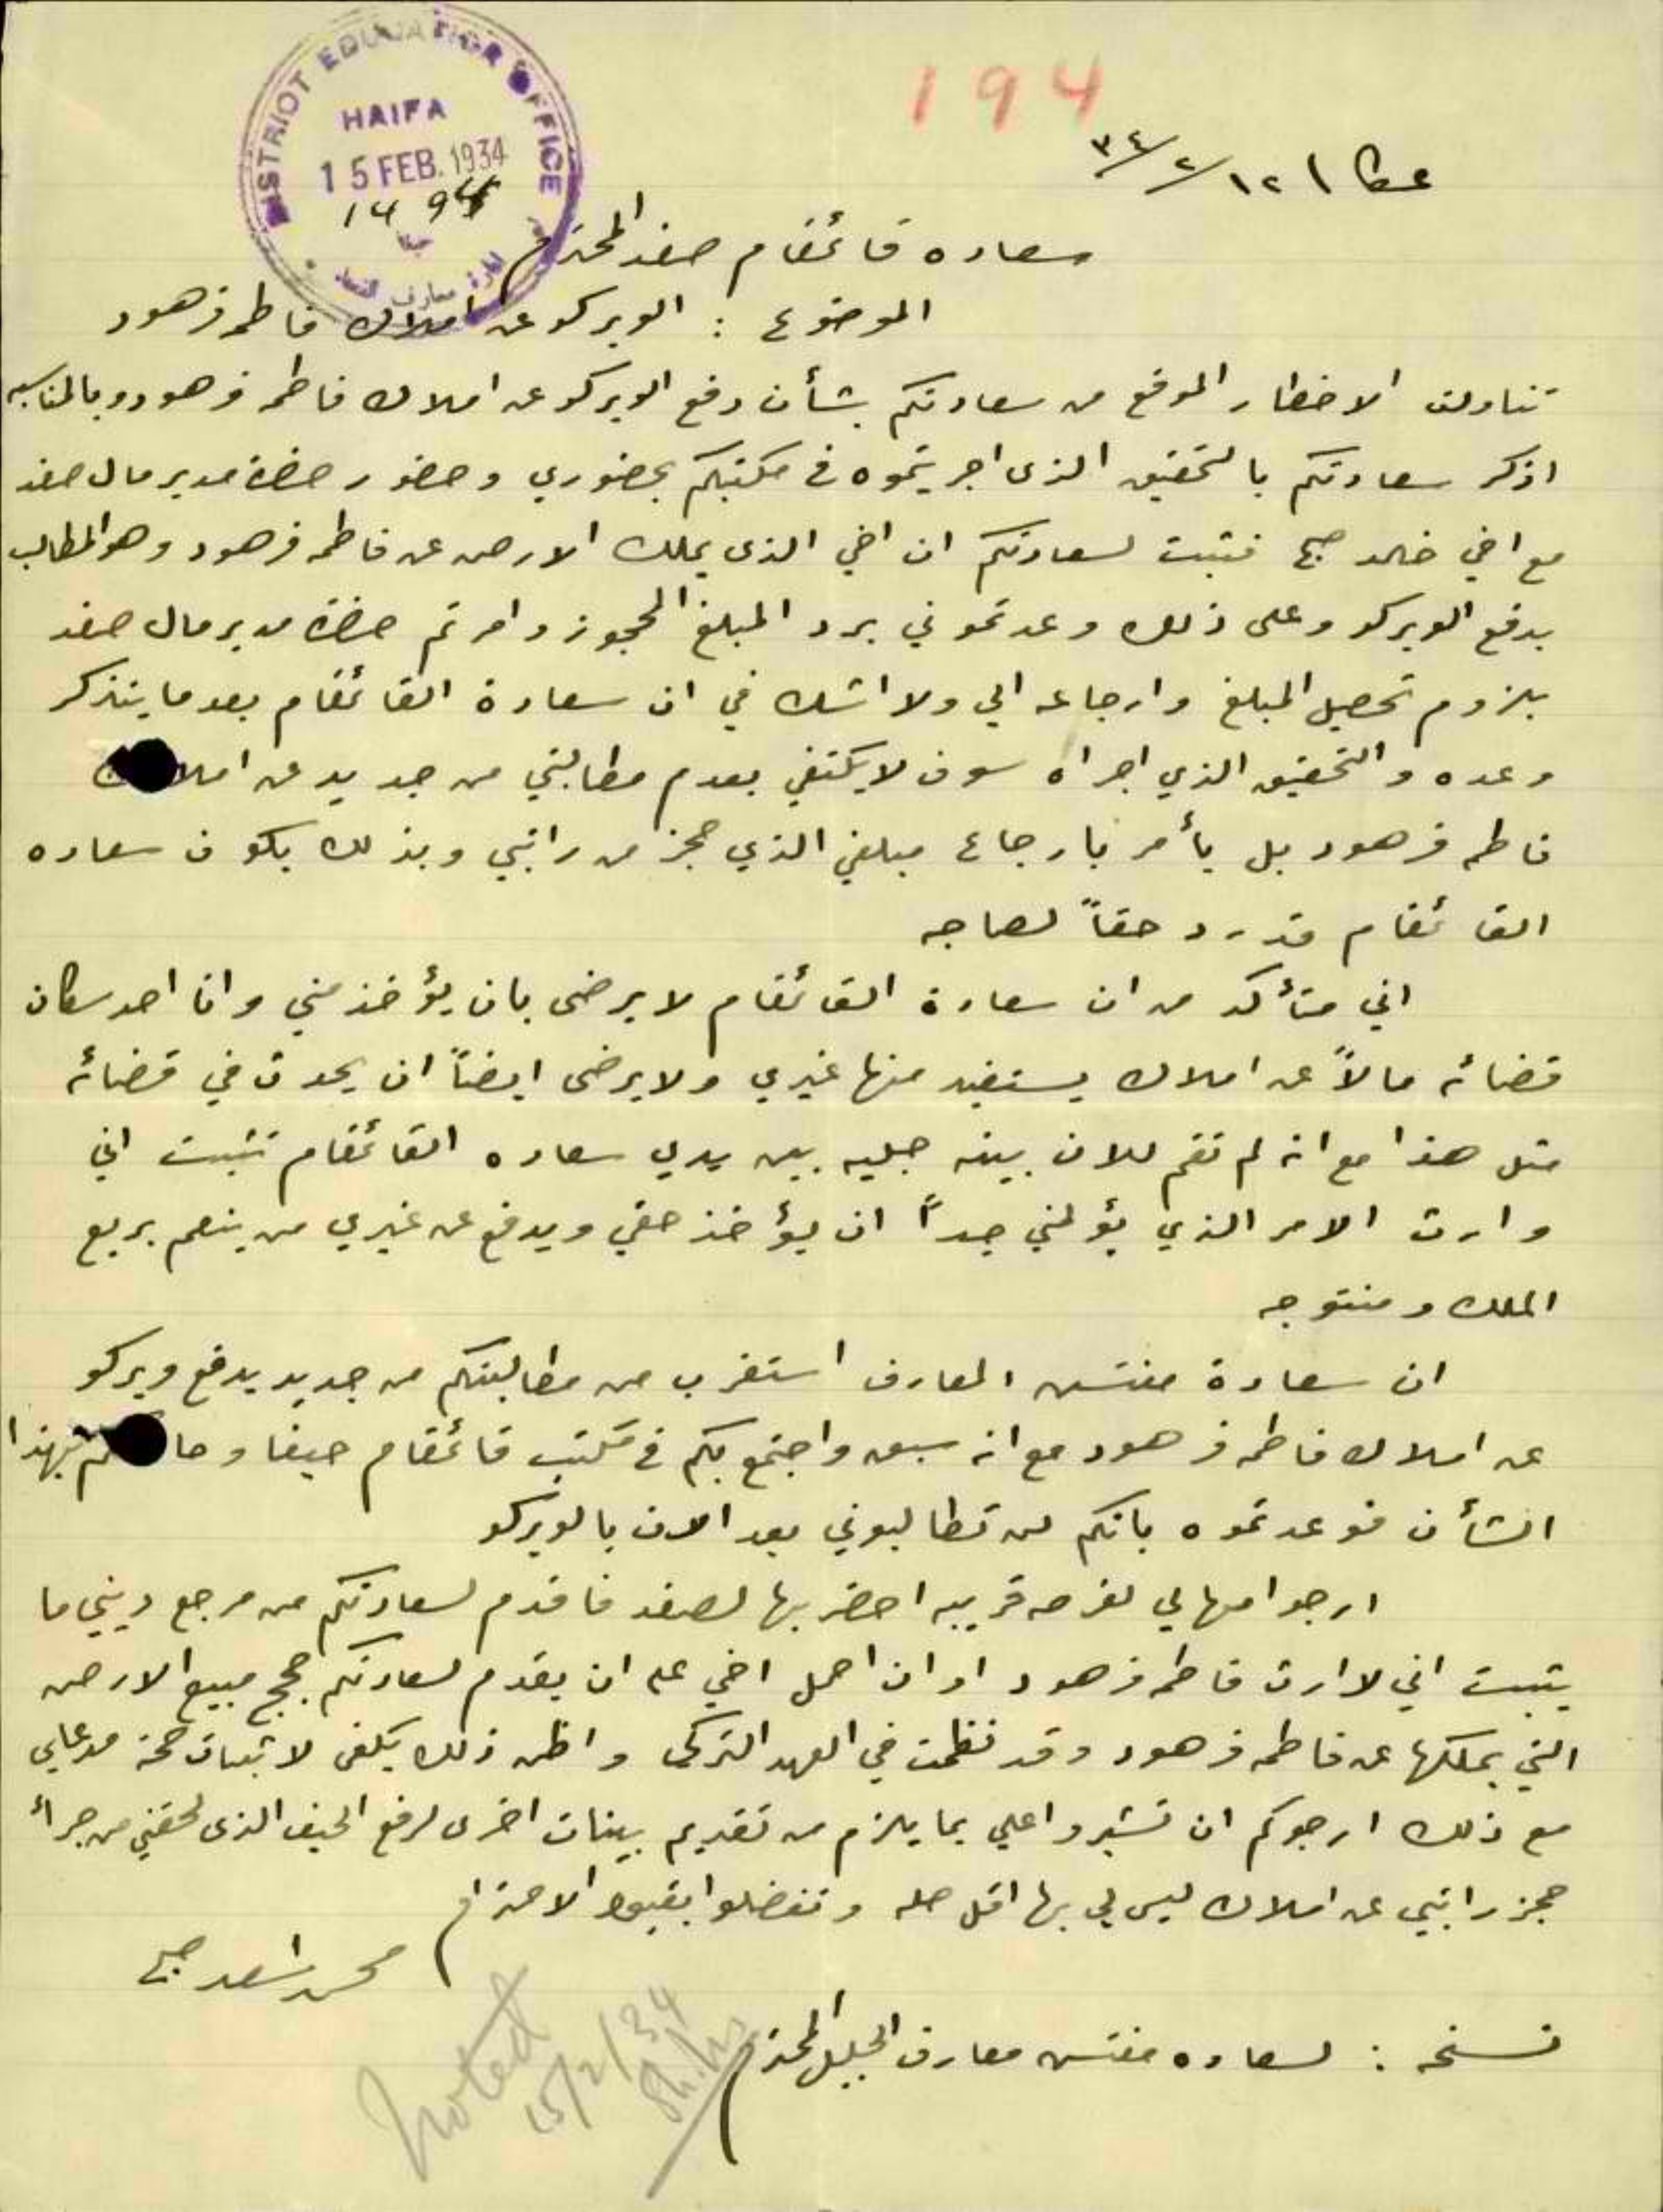 194
DISTRICT EDUCATION OFFICE
HAIFA
15 FEB. 1934
1494
عكا ١٢/٢/٣٤
سعاده قائمقام صفد المحترم
الموضوع : الويركو عن املاك فاطمه فرهود
تناولت الاخطار الموقع من سعادتكم بشأن دفع الويركو عن املاك فاطمه فرهود وبالمناسبه
اذكر سعادتكم بالتحقيق الذى اجريتموه في مكتبكم بحضوري وحضور حضرة مدير مال صفد
مع اخي خالد صبح فثبت لسعادتكم ان اخي الذى يملك الارض عن فاطمه فرهود وهو المطالب
بدفع الويركو وعلى ذلك وعدتموني برد المبلغ المحجوز وامرتم حضرة مدير مال صفد
بلزوم تحصيل المبلغ وارجاعه الي ولا اشك في ان سعادة القائمقام بعد ما يتذكر
وعده والتحقيق الذي اجراه سوف لا يكتفي بعدم مطالبتي من جديد عن املاك
فاطمه فرهود بل يأمر بارجاع مبلغي الذي حجز من راتبي وبذلك يكون سعاده
القائمقام قد رد حقاً لصاحبه
اني متأكد من ان سعادة القائمقام لا يرضى بان يؤخذ مني وانا احد سكان
قضائه مالاً عن املاك يستفيد منها غيري ولا يرضى ايضاً ان يحدث في قضائه
مثل هذا مع انه لم تقم للان بينه جليه بين يدي سعاده القائمقام تثبت اني
وارث الامر الذي يؤلمني جداً ان يؤخذ حقي ويدفع عن غيري من ينعم بريع
الملك ومنتوجه
ان سعادة مفتش المعارف استغرب من مطالبتكم من جديد بدفع ويركو
عن املاك فاطمه فرهود مع انه سبق واجتمع بكم في مكتب قائمقام حيفا و بهذا
الشأن فوعدتموه بانكم لن تطالبوني بعد الان بالويركو
ارجو امهالي لفرصه قريبه احضر بها لصفد فاقدم لسعادتكم من مرجع ديني ما
يثبت اني لا ارث فاطمه فرهود او ان احمل اخي على ان يقدم لسعادتكم حجج مبيع الارض
التي يملكها عن فاطمه فرهود وقد نظمت في العهد التركى واظن ذلك يكفى لاثبات صحة مدعاي
مع ذلك ارجوكم ان تشيروا علي بما يلزم من تقديم بينات اخرى لرفع الحيف الذى لحقني من جراء
حجز راتبي عن املاك ليس لي بها اقل صله وتفضلوا بقبول الاحترام
محمد اسعد صبح
نسخه : لسعاده مفتش معارف الجليل المحترم
Noted
15/2/34